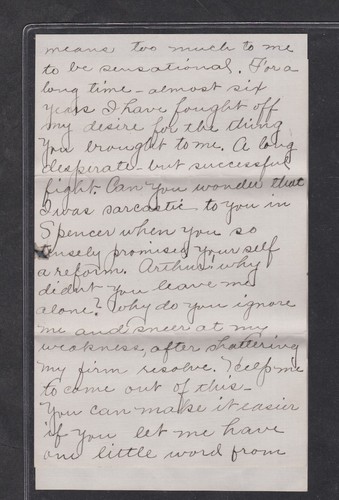 means too much to me
to be sensational. For a
long time - almost six
years I have fought off
my desire for the thing
you brought to me. A long
desperate - but successful
fight. Can you wonder that
I was sarcastic to you in
Spencer when you so
tensely promised yourself
a reform. Arthur, why
didn't you leave me
alone? Why do you ignore
me and sneer at my
weakness, after shattering
my firm resolve. Help me
to come out of this -
You can make it easier
if you let me have
one little word from